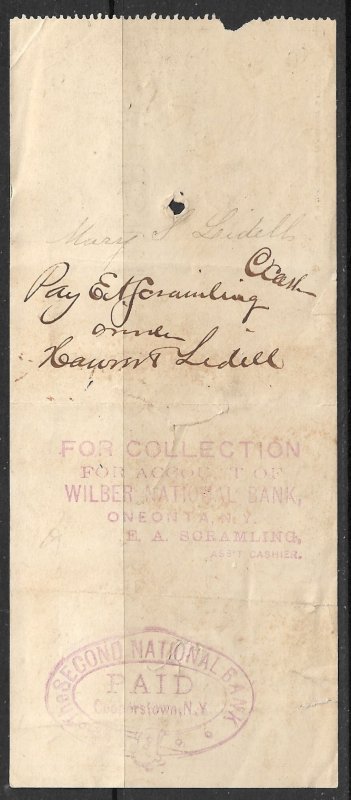 Mary S Liddell
Pay E A Scramling
Cash
order
Liddell
FOR COLLECTION
FOR ACCOUNT OF
WILBER NATIONAL BANK,
ONEONTA, N.Y.
E. A. SCRAMLING,
ASS'T CASHIER.
THE SECOND NATIONAL BANK
PAID
Cooperstown, N.Y.